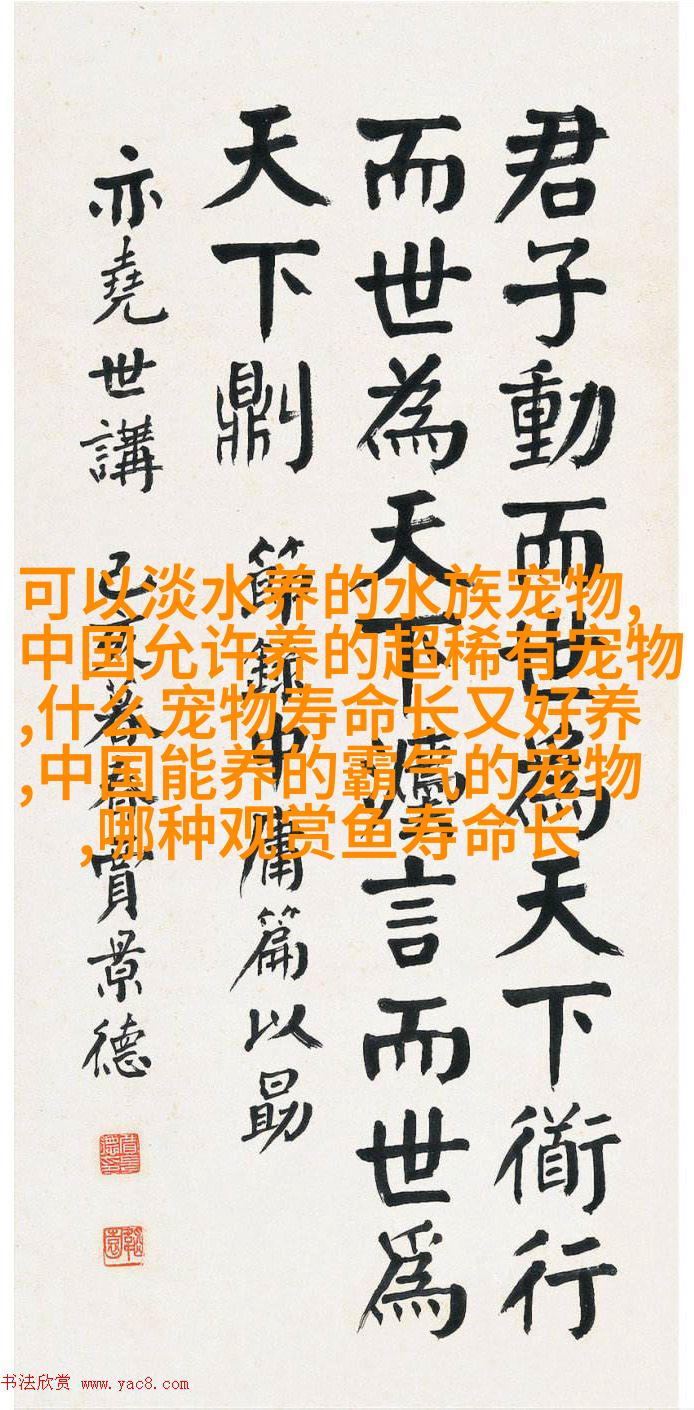 君子動而世為天下衟行
而世為天下灋言而世為
天下則 節錄中庸篇以勗
亦堯世講 己亥暮春賈景德
可以淡水养的水族宠物,
中国允许养的超稀有宠物
,什么宠物寿命长又好养
,中国能养的霸气的宠物
,哪种观赏鱼寿命长
书法欣赏 www.yac8.com